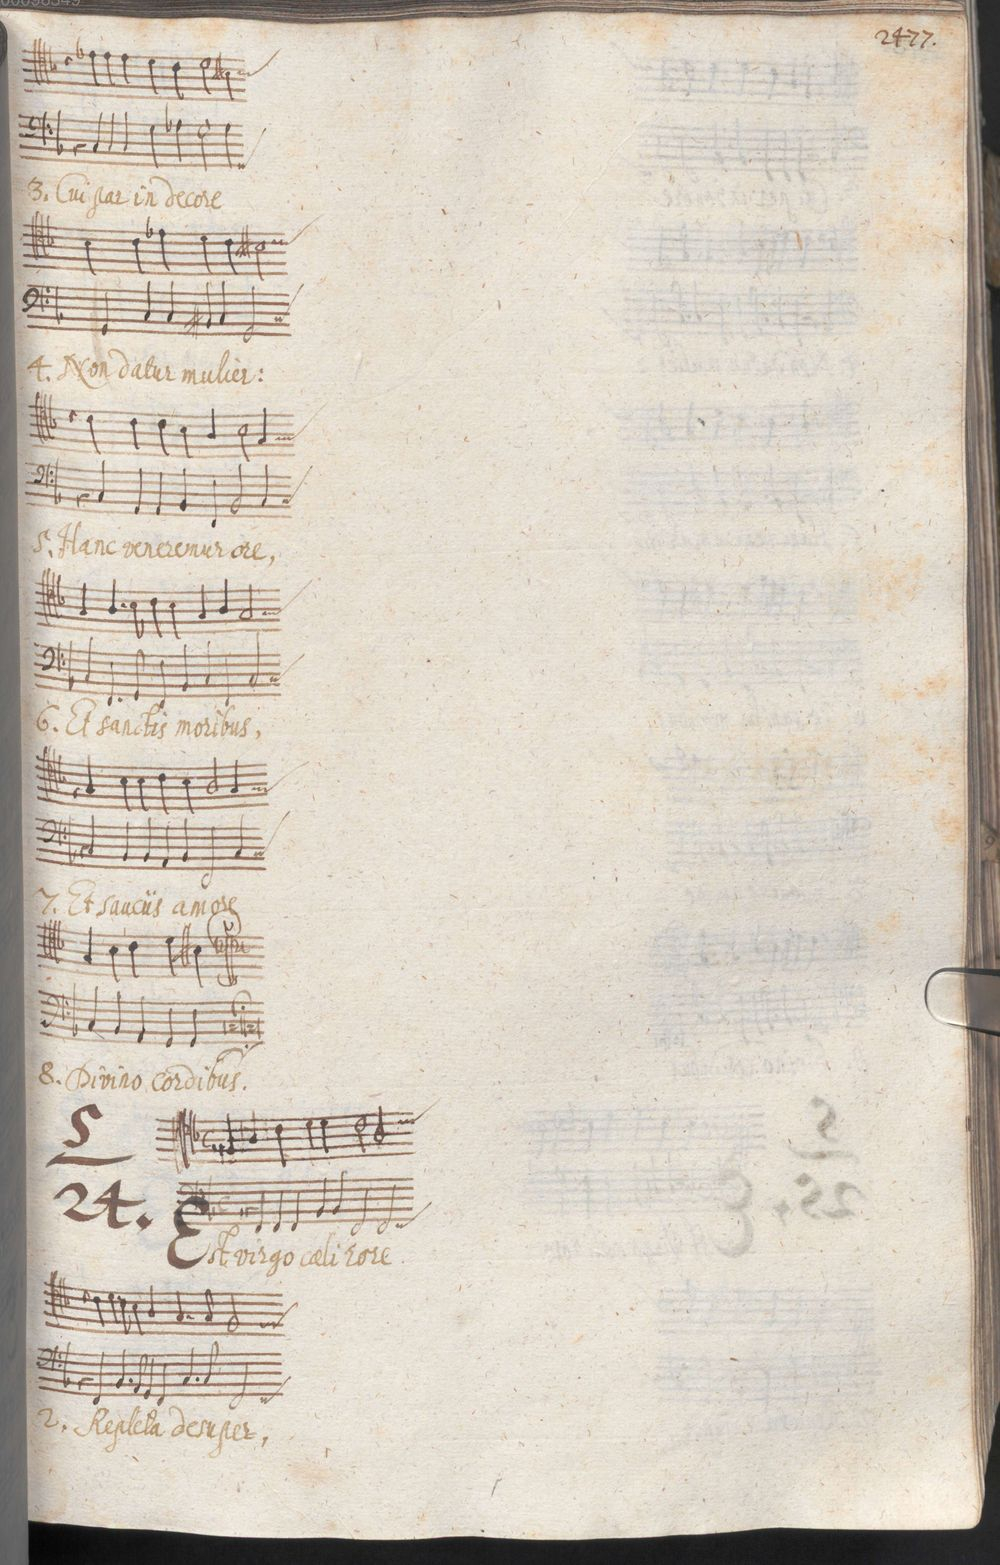 2477.
3. Cui par in decore
4. Non datur mulier:
5. Hanc veneremur ore,
6. Et sanctis moribus,
7. Et sauciis amore
8. Divino cordibus.
5
24. Est virgo cœli rore
2. Repleta desuper,